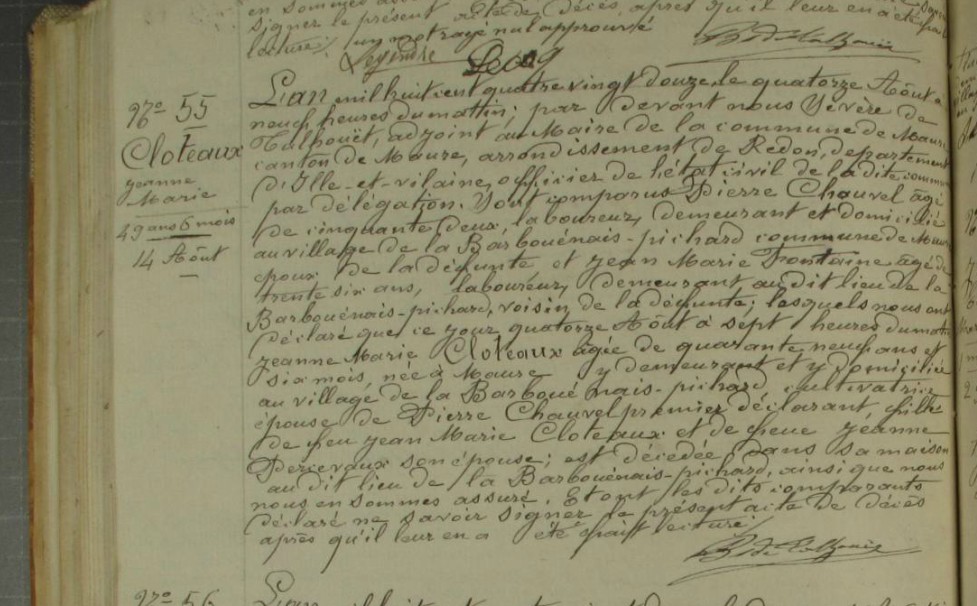 en sommes
signer le présent acte de décès, après qu'il leur en a été fait
lecture; un mot rayé nul approuvé
Legendre
N° 55
Cloteaux
Jeanne
Marie
49 ans 6 mois
14 Août
L'an mil huit cent quatre vingt douze, le quatorze Août à
neuf heures du matin; par devant nous Sévère de
Talhouët, adjoint au Maire de la commune de Maure
canton de Maure, arrondissement de Redon, département
d'Ille-et-vilaine, officier de l'état civil de la dite commune
par délégation. Sont comparus Pierre Chauvel âgé
de cinquante deux, laboureur, demeurant et domicilié
au village de la Barbouënais-pichard commune de Maure
époux de la défunte, et Jean Marie Fontaine âgé de
trente six ans, laboureur, demeurant au dit lieu de la
Barbouënais-pichard, voisin de la défunte; lesquels nous ont
déclaré que ce jour quatorze Août à sept heures du matin
Jeanne Marie Cloteaux âgée de quarante neuf ans et
six mois, née à Maure y demeurant et y domiciliée
au village de la Barbouënais-pichard, cultivatrice
épouse de Pierre Chauvel premier déclarant, fille
de feu Jean Marie Cloteaux et de feue Jeanne
Percevaux son épouse; est décédée dans sa maison
au dit lieu de la Barbouënais-pichard, ainsi que nous
nous en sommes assuré. Et ont les dits comparants
déclaré ne savoir signer le présent acte de décès
après qu'il leur en a été fait lecture
N° 56
L'an